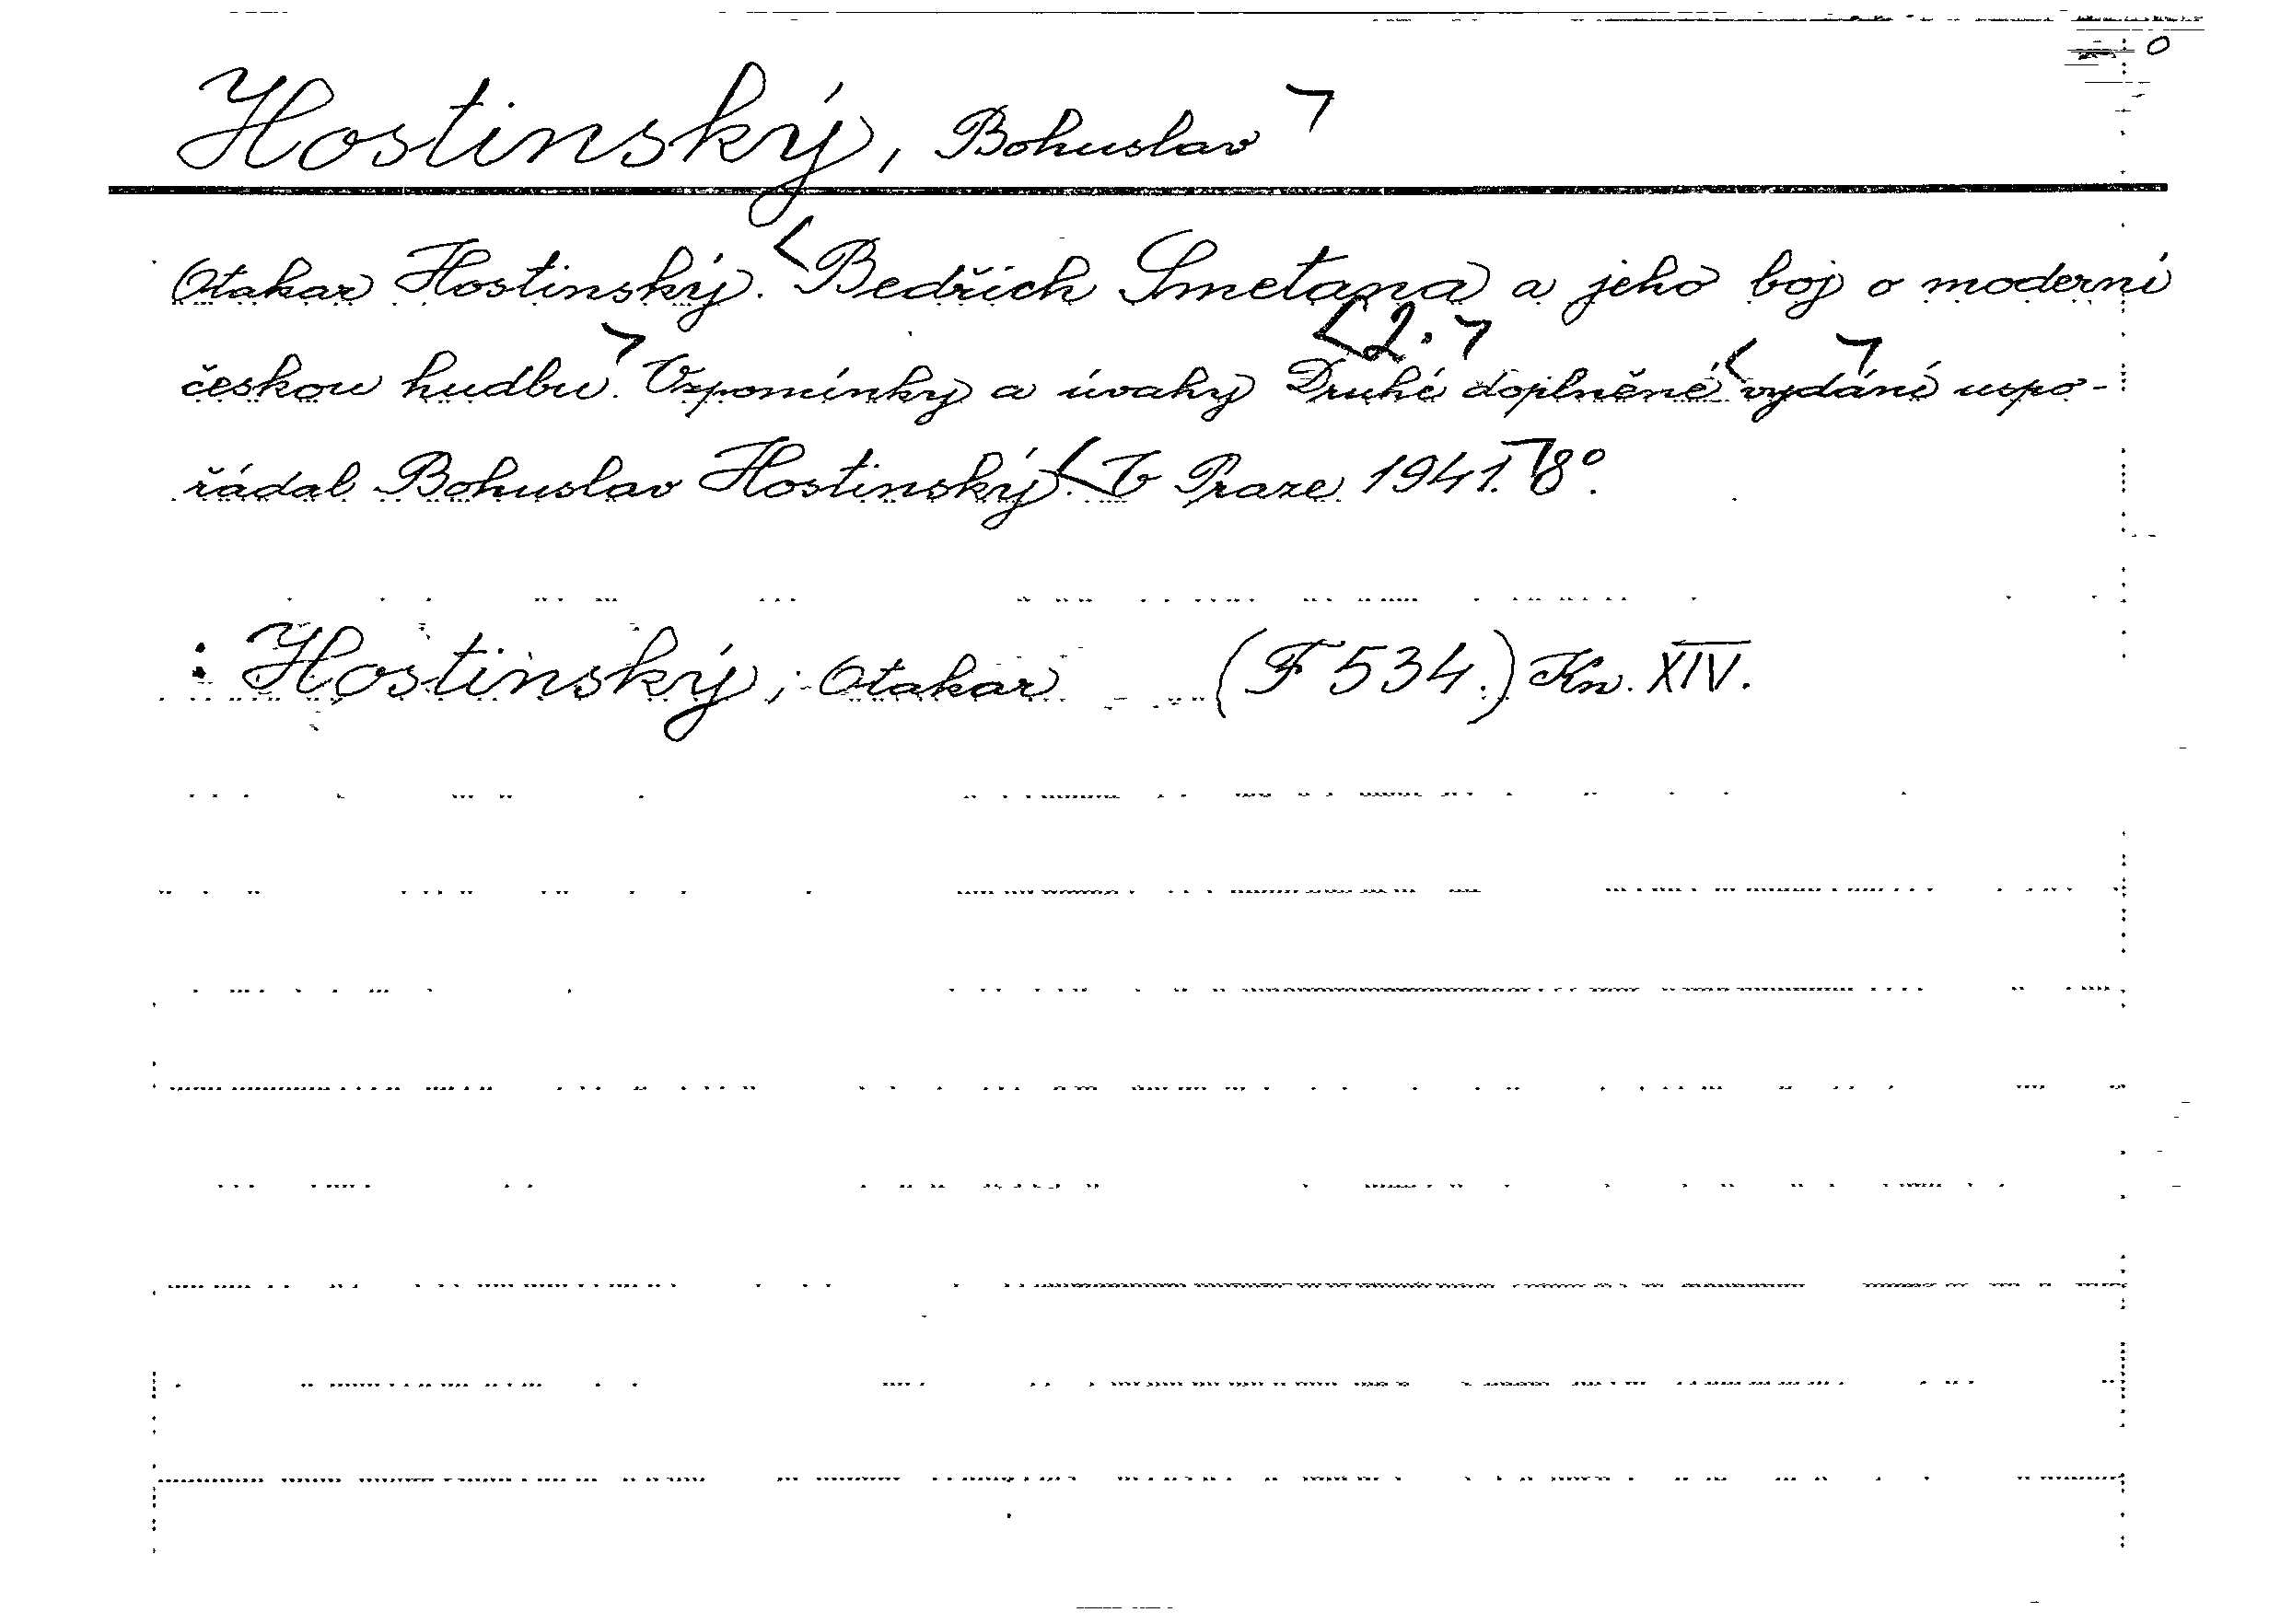 Hostinský, Bohuslav
Otakar Hostinský. Bedřich Smetana a jeho boj o moderní
2.
českou hudbu. Vzpomínky a úvahy Druhé doplněné vydání uspo-
řádal Bohuslav Hostinský. V Praze 1941. 8°.
: Hostinský, Otakar (F 534.) Kn. XIV.